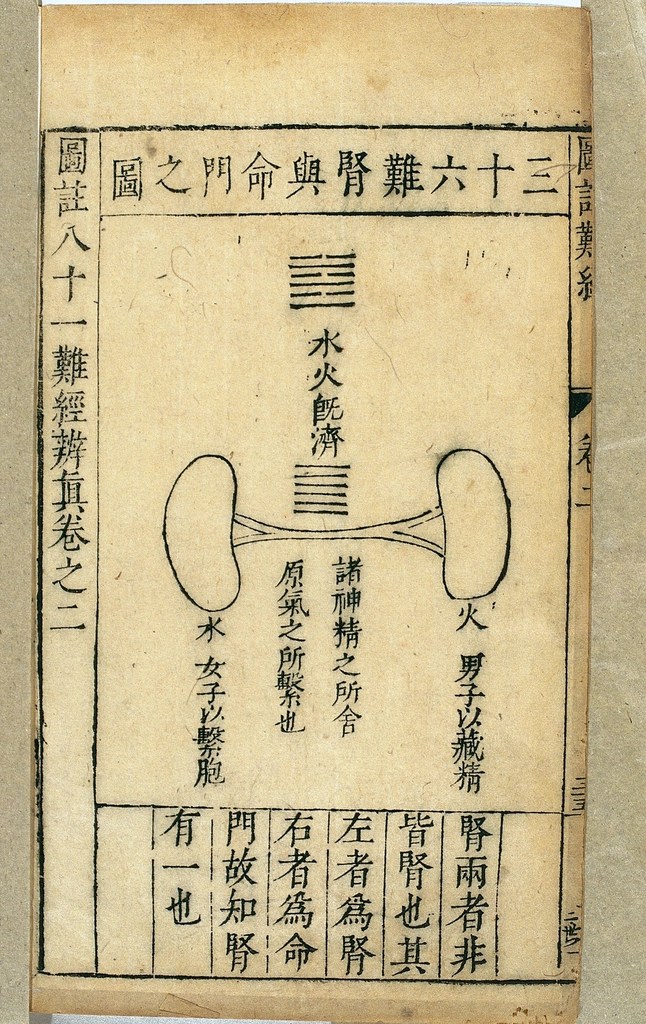 三十六難腎與命門之圖
水火既濟
火 男子以藏精
諸神精之所舍
原氣之所繫也
水 女子以繫胞
腎兩者非
皆腎也其
左者為腎
右者為命
門故知腎
有一也
圖註八十一難經辨眞卷之二
圖註難經
卷二